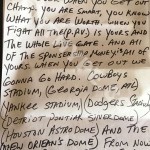 WHEN YOU GET OUT
CHITT, YOU ARE SMART, YOU KNOW
WHAT YOU ARE WORTH, WHEN YOU
FIGHT All THE (P.PV) IS YOURS AND
THE WHOLE LIVE GATE, AND All
OF THE SPONSER THE MONEYS All OF
YOURS, WHEN YOU GET OUT WE
GONNA GO HARD. COWBOYS
STADIUM, (GEORGIA DOME, ATL)
YANKEE STADIUM, (DODGERS
(DETRIOT PONTIAC SILVERDOME)
(HOUSTON ASTRODOME) AND THE
(NEW ORLEAN'S DOME) FROM NOW